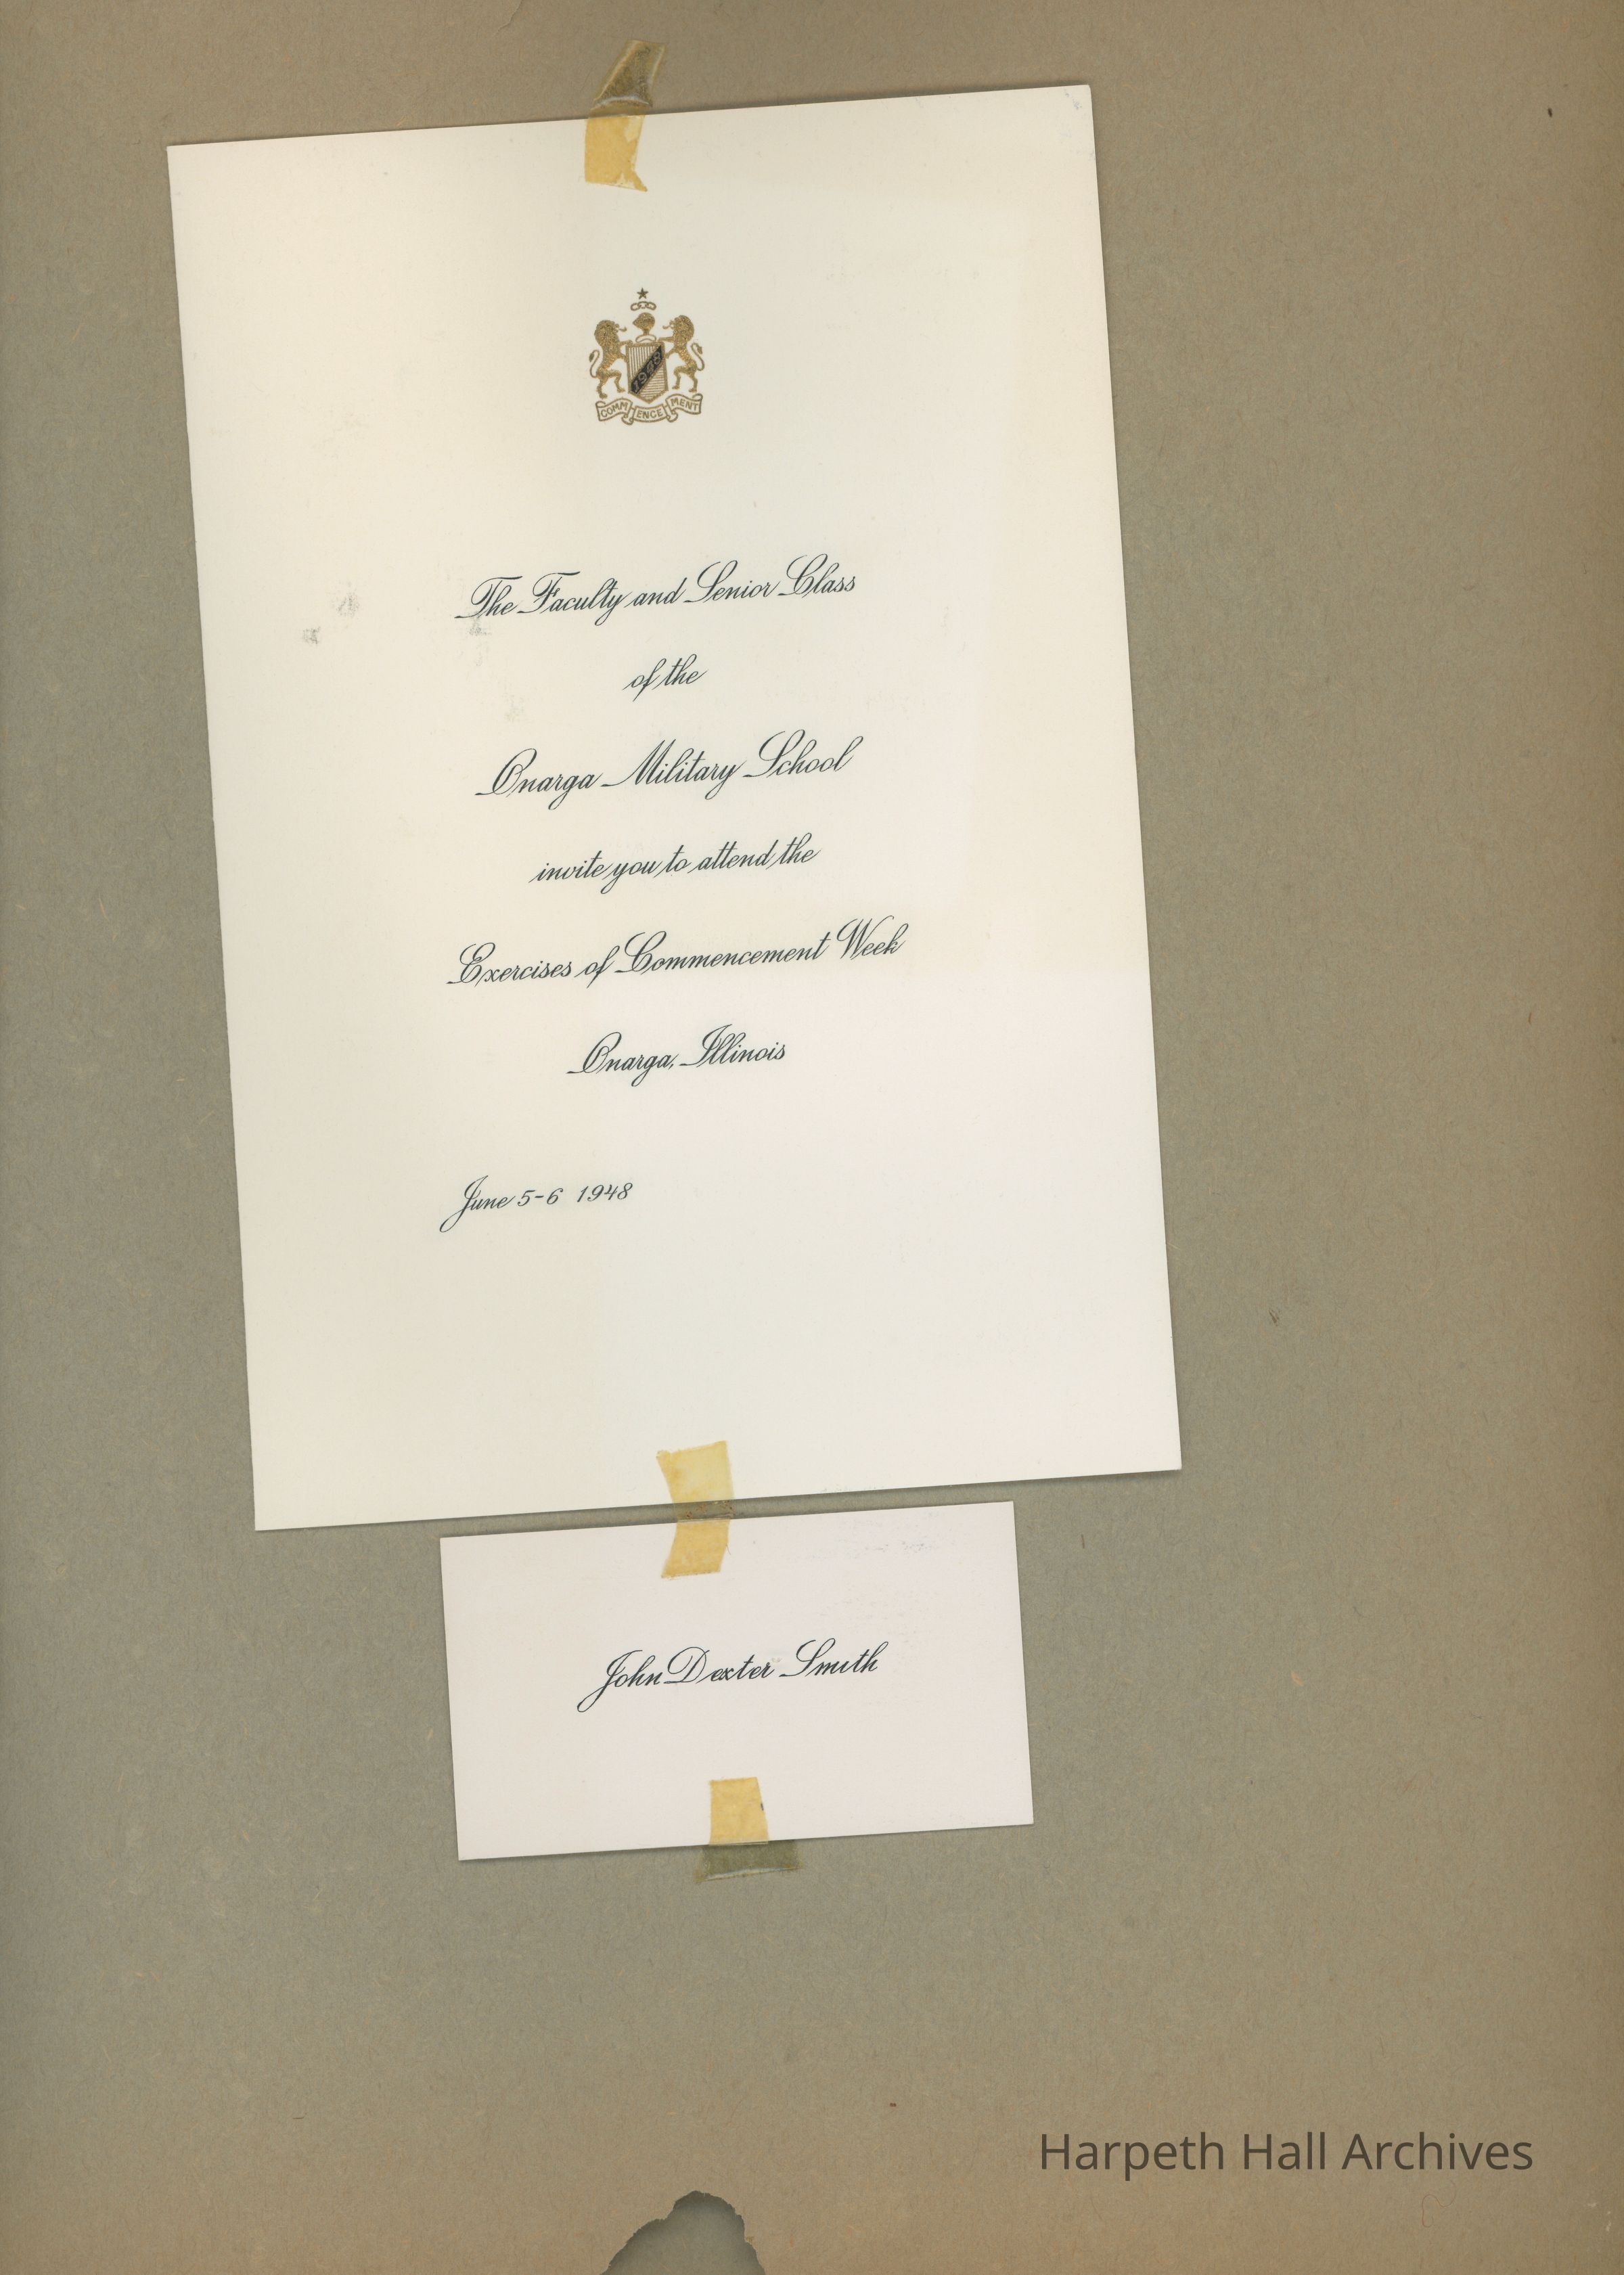 1948
COMMENCEMENT
The Faculty and Senior Class
of the
Onarga Military School
invite you to attend the
Exercises of Commencement Week
Onarga, Illinois
June 5-6 1948
John Dexter Smith
Harpeth Hall Archives